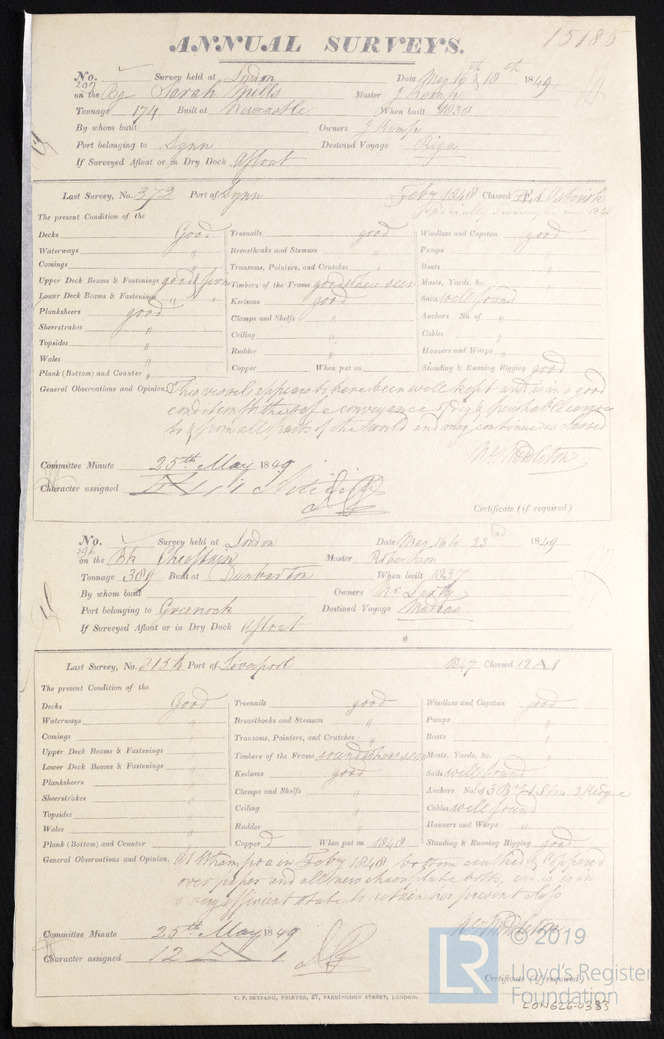 15185
ANNUAL SURVEYS.
No. 297 Survey held at London Date May 16th & 18th 1849
on the Bg Sarah Mills Master J Kemp
Tonnage 174 Built at Newcastle When built 1838
By whom built Owners J Kemp
Port belonging to Lynn Destined Voyage Riga
If Surveyed Afloat or in Dry Dock Afloat
Last Survey, No. 372 Port of Lynn Feby 1848 Classed
The present Condition of the
Decks Good Treenails good Windlass and Capstan good
Waterways " Breasthooks and Stemson " Pumps "
Comings " Transoms, Pointers, and Crutches " Boats "
Upper Deck Beams & Fastenings good & firm Timbers of the Frame good where seen Masts, Yards, &c. "
Lower Deck Beams & Fastenings " " Keelsons good Sails well found
Planksheers good Clamps and Shelfs " Anchors No. of "
Sheerstrakes " Ceiling " Cables "
Topsides " Rudder " Hawsers and Warps "
Wales " Copper When put on Standing & Running Rigging good
Plank (Bottom) and Counter "
General Observations and Opinion, This vessel appears to have been well kept and is in a good
condition for the safe conveyance of dry & perishable cargoes
to & from all parts of the World and may continue as classed
Committee Minute 25th May 1849
Character assigned
Certificate (if required)
No. 296 Survey held at London Date May 16 to 23rd 1849
on the Bk Chieftain Master Robertson
Tonnage 389 Built at Dunbarton When built 1837
By whom built Owners
Port belonging to Greenock Destined Voyage Madras
If Surveyed Afloat or in Dry Dock Afloat
Last Survey, No. Port of Liverpool 1847 Classed 12 A 1
The present Condition of the
Decks Good Treenails good Windlass and Capstan good
Waterways " Breasthooks and Stemson " Pumps "
Comings " Transoms, Pointers, and Crutches " Boats "
Upper Deck Beams & Fastenings " Timbers of the Frame sound where seen Masts, Yards, &c. "
Lower Deck Beams & Fastenings " Keelsons good Sails well found
Planksheers " Clamps and Shelfs " Anchors No. of 3 B 1 Stm 2 Kedge
Sheerstrakes " Ceiling " Cables well found
Topsides " Rudder " Hawsers and Warps "
Wales " Copper'd When put on 1848 Standing & Running Rigging good
Plank (Bottom) and Counter "
General Observations and Opinion, At Whampoa in Feby 1848 bottom caulked & coppered
over paper and all new chain plate bolts, and is in
a very efficient state to retain her present class
Committee Minute 25th May 1849
Character assigned 12 A 1
Certificate (if required)
C. F. SEYFANG, PRINTED, 57, FARRINGDON STREET, LONDON.
LR © 2019
Lloyd's Register
Foundation
LON626-0383